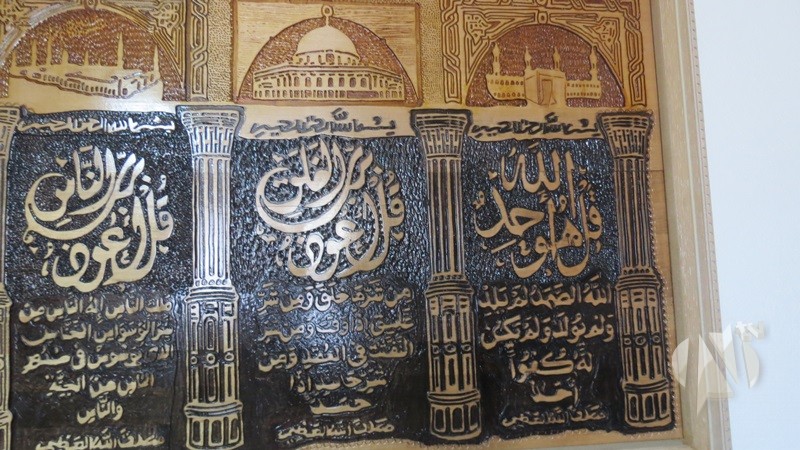 بسم الله الرحمن الرحيم
قل هو الله أحد
الله الصمد لم يلد
ولم يولد ولم يكن
له كفوا
احد
صدق الله العظيم
بسم الله الرحمن الرحيم
قل أعوذ برب الفلق
من شر ما خلق ومن شر
غاسق إذا وقب ومن شر
النفثت في العقد ومن
شر حاسد إذا
حسد
صدق الله العظيم
بسم الله الرحمن الرحيم
قل أعوذ برب الناس
ملك الناس اله الناس من
شر الوسواس الخناس
الذي يوسوس في صدور
الناس من الجنة
والناس
صدق الله العظيم